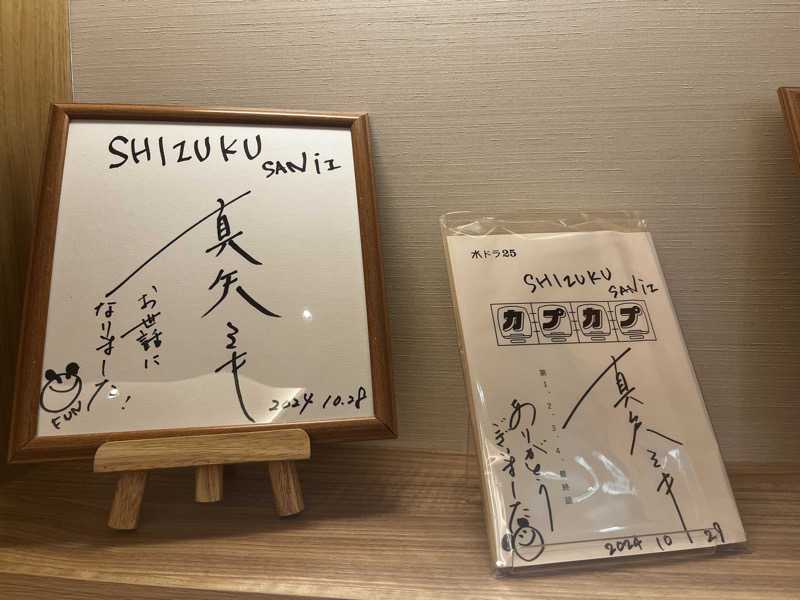 SHIZUKU
SANIZ
真矢ミキ
お世話に
なりました!
FUN
2024 10.28
水ドラ25
SHIZUKU
SANIZ
カプカプ
第1.2.3.4.最終話
真矢ミキ
ありがとう
ございました
2024 10 29